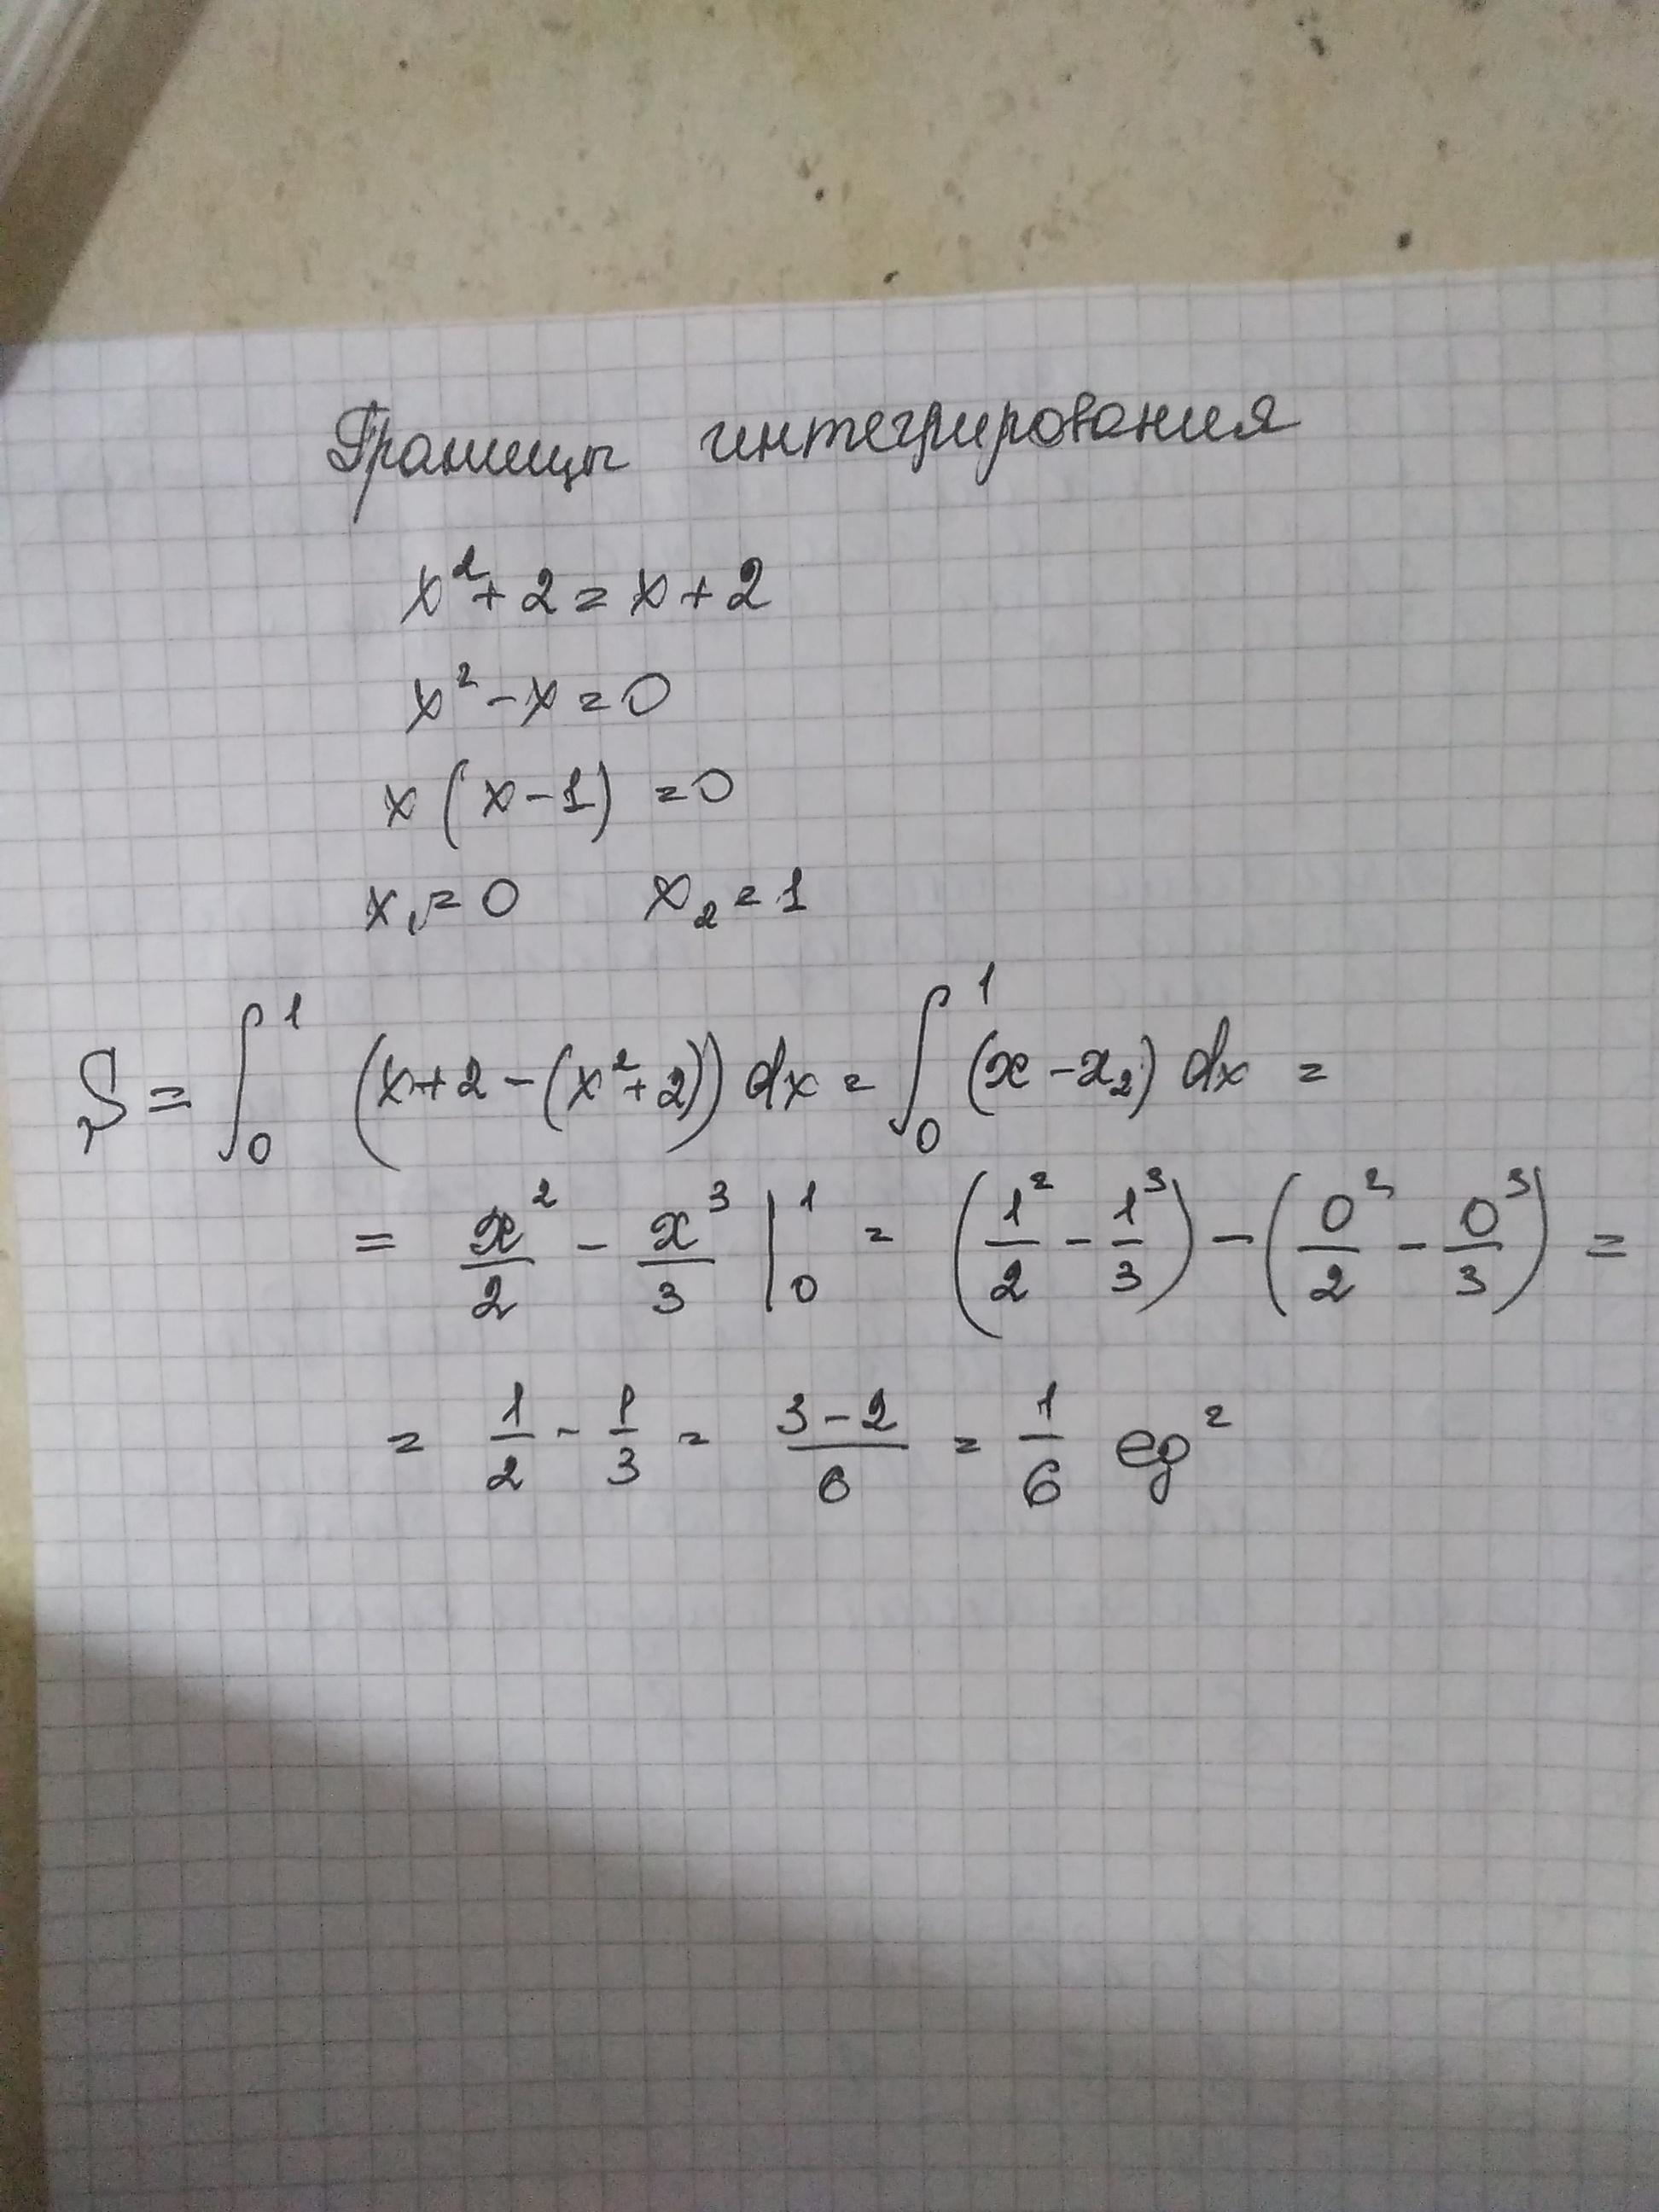 Границы интегрирования
x² + 2 = x + 2
x² - x = 0
x (x - 1) = 0
x₁ = 0 x₂ = 1
S = ∫₀¹ (x + 2 - (x² + 2)) dx = ∫₀¹ (x - x₂) dx =
= x²/2 - x³/3 |₀¹ = (1²/2 - 1³/3) - (0²/2 - 0³/3) =
= 1/2 - 1/3 = (3 - 2)/6 = 1/6 ед²